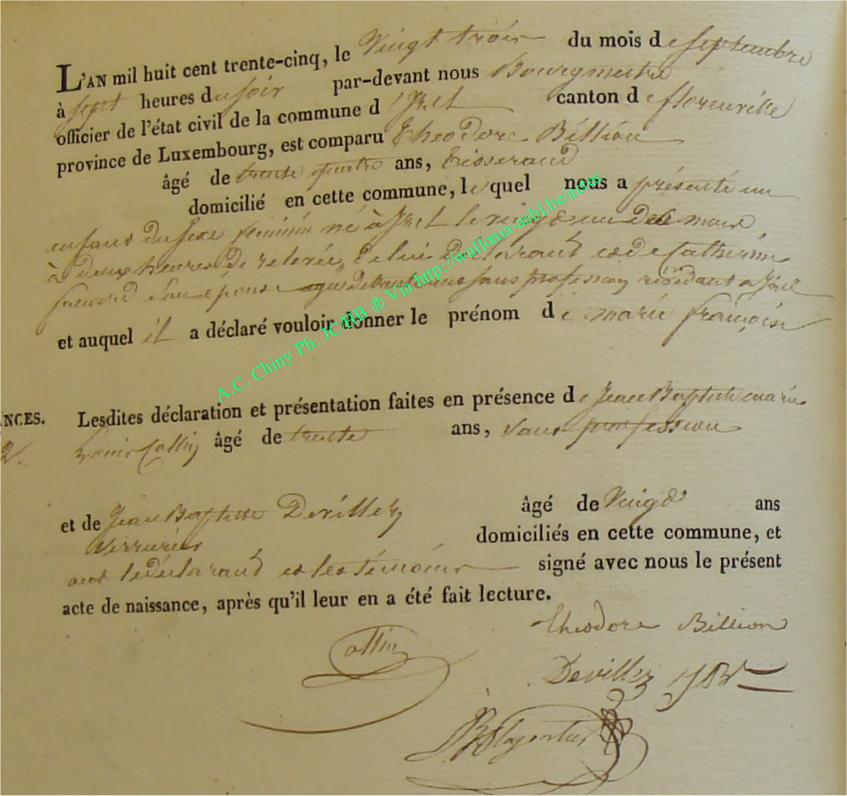 L'AN mil huit cent trente-cinq, le Vingt trois du mois de septembre
à sept heures du soir par-devant nous Bourgmestre
officier de l'état civil de la commune d'Izel canton de florenville
province de Luxembourg, est comparu Theodore Billion
âgé de trente quatre ans, tisserand
domicilié en cette commune, lequel nous a présenté un
enfant du sexe feminin né à Izel le vingt deux de ce mois
à deux heures de relevée, de lui declarant et de Catherine
son epouse agée de trente ans sans profession résidant a Izel
et auquel il a déclaré vouloir donner le prénom de marie françoise
NCES. Lesdites déclaration et présentation faites en présence de Jean Baptiste marie
2. Louis Collin âgé de trente ans, sans profession
et de Jean Baptiste Devillez âgé de Vingt ans
serrurier domiciliés en cette commune, et
ont le declarant et les témoins signé avec nous le présent
acte de naissance, après qu'il leur en a été fait lecture.
Theodore Billion
Collin
Devillez JB
A.C. Chiny Ph. JC HB ® Via http://wallonia-asbl.be